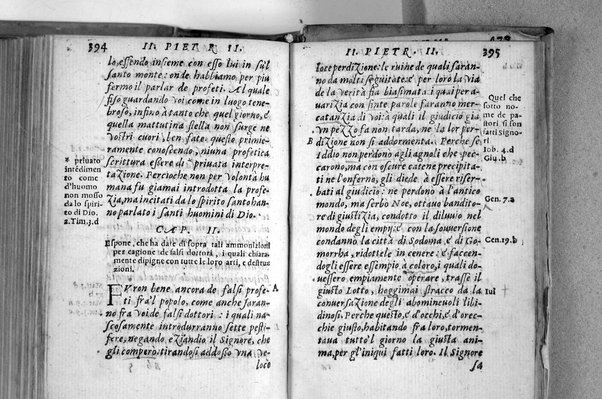 394
II. PIETR. II.
lo, essendo insieme con esso lui in sul
santo monte: onde habbiamo, per piu
fermo il parlar de profeti. Al quale
fiso guardando voi come in luogo tene-
broso, infino à tanto che quel giorno, e
quella mattutina stella non surge ne
vostri cuori, ben fate: questo primie-
ramente conoscendo, niuna profetica
scrittura essere di * priuata interpre-
tazione. Percioche non per volontà hu
mana fu giamai introdotta la profe-
zia, ma incitati da lo spirito santo han-
no parlato i santi huomini di Dio.
* priuato
intēdimēto
come
d'huomo
non mosso
da lo spiri-
to di Dio.
2.Tim.3.d
CAP. II.
Espone, che ha date di sopra tali ammonizioni
per cagione de falsi dottori, i quali chiara-
mente dipigne con tutte le loro arti, e destruz
zioni.
A
FVron bene ancora de falsi profe-
ti fra'l popolo, come anche saran-
no fra voi de falsi dottori: i quali na-
scosamente introdurranno sette pesti-
fere, negando eziandio il Signore, che
gli comperò, tirandosi addosso vna ve-
loce
II. PIETR. II.
395
loce perdizione: le ruine de quali saran-
no da molti seguitate: e per loro la via
de la verità fia biasimata: i quai per a-
uarizia con finte parole faranno mer-
catanzia di voi: à quali il giudicio già
vn pezzo fa non tarda, ne la lor per-
B
dizione non si addormenta. Perche se
Iddio non perdonò agli agnoli che pec-
carono, ma con oscure catene precipita-
ti ne l'inferno, gli diede à essere riser-
bati al giudicio: ne perdonò à l'antico
mondo, ma serbò Noe, ottauo bandito-
re di giustizia, condotto il diluuio nel
mondo degli empij: e con la souuersione
condannò la città di Sodoma, e di Go-
morrha, ridottele in cenere: e faccen-
dogli essere essempio à coloro, i quali do-
uessero empiamente operare, trasse il
giusto Lotto, hoggimai stracco da la
conuersazione degli abomineuoli libi-
dinosi. Perche questo, e d'occhi, e d'orec-
chie giusto, habitando fra loro, tormen-
taua tutto'l giorno la giusta ani-
ma, per gl'iniqui fatti loro. Il Signore
sa
Quel che
sotto no-
me de pa-
stori. ti son
fatti signo-
ri
Iob. 4.d
Giu.b.
Gen.7.a
Gen.19.b